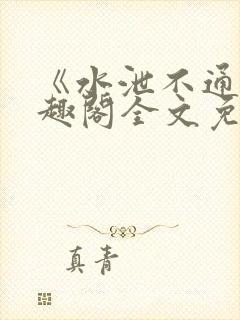 《水泄不通
趣阁全文免
真青